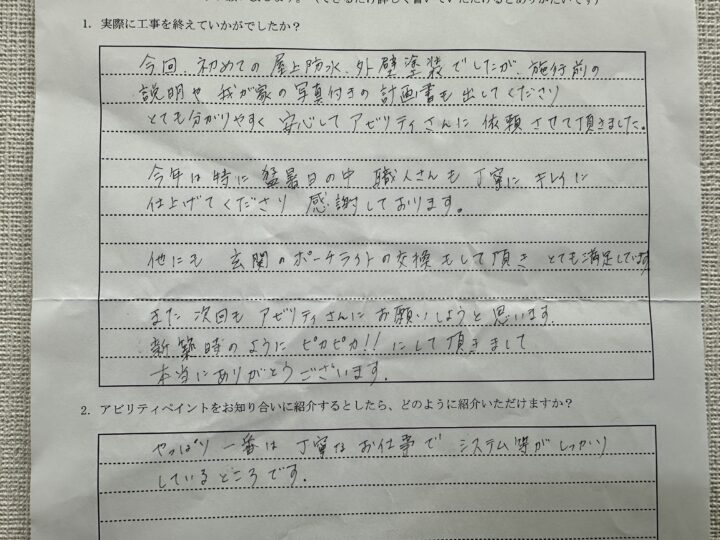 1. 実際に工事を終えていかがでしたか？
今回、初めての屋上防水、外壁塗装でしたが、施行前の
説明や我が家の写真付きの計画書も出してくださり
とても分かりやすく安心してアビリティさんに依頼させて頂きました。
今年は特に猛暑日の中 職人さんも丁寧にキレイに
仕上げてくださり 感謝しております。
他にも 玄関のポーチライトの交換もして頂き とても満足しています
また次回もアビリティさんにお願いしようと思います。
新築時のように ピカピカ!! にして頂きまして
本当にありがとうございます。
2. アビリティペイントをお知り合いに紹介するとしたら、どのように紹介いただけますか？
やっぱり一番は丁寧なお仕事で システム等がしっかり
しているところです。